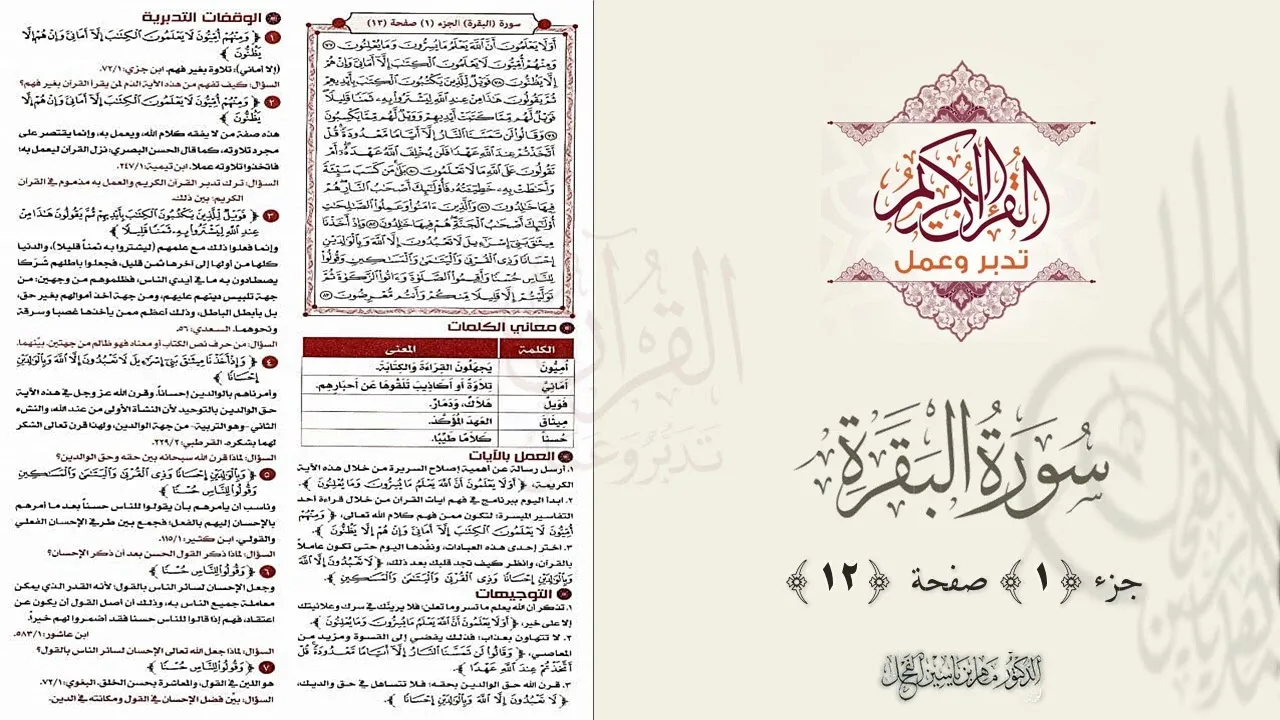 سورة (البقرة) الجزء (١) صفحة (١٢)
أَوَلَا يَعْلَمُونَ أَنَّ اللَّهَ يَعْلَمُ مَا يُسِرُّونَ وَمَا يُعْلِنُونَ ٧٧
وَمِنْهُمْ أُمِّيُّونَ لَا يَعْلَمُونَ الْكِتَابَ إِلَّا أَمَانِيَّ وَإِنْ هُمْ
إِلَّا يَظُنُّونَ ٧٨ فَوَيْلٌ لِلَّذِينَ يَكْتُبُونَ الْكِتَابَ بِأَيْدِيهِمْ
ثُمَّ يَقُولُونَ هَذَا مِنْ عِنْدِ اللَّهِ لِيَشْتَرُوا بِهِ ثَمَنًا قَلِيلًا
فَوَيْلٌ لَهُمْ مِمَّا كَتَبَتْ أَيْدِيهِمْ وَوَيْلٌ لَهُمْ مِمَّا يَكْسِبُونَ
٧٩ وَقَالُوا لَنْ تَمَسَّنَا النَّارُ إِلَّا أَيَّامًا مَعْدُودَةً قُلْ
أَتَّخَذْتُمْ عِنْدَ اللَّهِ عَهْدًا فَلَنْ يُخْلِفَ اللَّهُ عَهْدَهُ أَمْ
تَقُولُونَ عَلَى اللَّهِ مَا لَا تَعْلَمُونَ ٨٠ بَلَى مَنْ كَسَبَ سَيِّئَةً
وَأَحَاطَتْ بِهِ خَطِيئَتُهُ فَأُولَئِكَ أَصْحَابُ النَّارِ هُمْ
فِيهَا خَالِدُونَ ٨١ وَالَّذِينَ آمَنُوا وَعَمِلُوا الصَّالِحَاتِ
أُولَئِكَ أَصْحَابُ الْجَنَّةِ هُمْ فِيهَا خَالِدُونَ ٨٢ وَإِذْ أَخَذْنَا
مِيثَاقَ بَنِي إِسْرَائِيلَ لَا تَعْبُدُونَ إِلَّا اللَّهَ وَبِالْوَالِدَيْنِ
إِحْسَانًا وَذِي الْقُرْبَى وَالْيَتَامَى وَالْمَسَاكِينِ وَقُولُوا
لِلنَّاسِ حُسْنًا وَأَقِيمُوا الصَّلَاةَ وَآتُوا الزَّكَاةَ ثُمَّ
تَوَلَّيْتُمْ إِلَّا قَلِيلًا مِنْكُمْ وَأَنْتُمْ مُعْرِضُونَ ٨٣
معاني الكلمات
الكلمة المعنى
أُمِّيُّونَ يَجْهَلُونَ القِرَاءَةَ وَالكِتَابَةَ.
أَمَانِيَّ تِلَاوَةً أَو أَكَاذِيبَ تَلَقَّوهَا عَن أَحبَارِهِم.
فَوَيْلٌ هَلَاكٌ، وَدَمَارٌ.
مِيثَاقَ العَهدَ المُؤَكَّدَ.
حُسْنًا كَلَامًا طَيِّبًا.
العمل بالآيات
١. أرسل رسالة عن أهمية إصلاح السريرة من خلال هذه الآية
الكريمة، ﴿ أَوَلَا يَعْلَمُونَ أَنَّ اللَّهَ يَعْلَمُ مَا يُسِرُّونَ وَمَا يُعْلِنُونَ ﴾
٢. ابدأ اليوم ببرنامج في فهم آيات القرآن من خلال قراءة أحد
التفاسير الميسرة؛ لتكون ممن فهم كلام الله تعالى، ﴿ وَمِنْهُمْ
أُمِّيُّونَ لَا يَعْلَمُونَ الْكِتَابَ إِلَّا أَمَانِيَّ وَإِنْ هُمْ إِلَّا يَظُنُّونَ ﴾
٣. اختر إحدى هذه العبادات، ونفّذها اليوم حتى تكون عاملاً
بالقرآن، وانظر كيف تجد قلبك بعد ذلك، ﴿ لَا تَعْبُدُونَ إِلَّا اللَّهَ
وَبِالْوَالِدَيْنِ إِحْسَانًا وَذِي الْقُرْبَى وَالْيَتَامَى وَالْمَسَاكِينِ ﴾
التوجيهات
١. تذكر أن الله يعلم ما تسر وما تعلن؛ فلا يرينّك في سرك وعلانيتك
إلا على خير، ﴿ أَوَلَا يَعْلَمُونَ أَنَّ اللَّهَ يَعْلَمُ مَا يُسِرُّونَ وَمَا يُعْلِنُونَ ﴾
٢. لا تتهاون بعذاب؛ فذلك يفضي إلى القسوة ومزيد من
المعاصي، ﴿ وَقَالُوا لَنْ تَمَسَّنَا النَّارُ إِلَّا أَيَّامًا مَعْدُودَةً قُلْ
أَتَّخَذْتُمْ عِنْدَ اللَّهِ عَهْدًا ﴾
٣. قرن الله حق الوالدين بحقه؛ فلا تتساهل في حق والديك،
﴿ لَا تَعْبُدُونَ إِلَّا اللَّهَ وَبِالْوَالِدَيْنِ إِحْسَانًا ﴾
الوقفات التدبرية
١ ﴿ وَمِنْهُمْ أُمِّيُّونَ لَا يَعْلَمُونَ الْكِتَابَ إِلَّا أَمَانِيَّ وَإِنْ هُمْ إِلَّا
يَظُنُّونَ ﴾
(إلا أماني): تلاوة بغير فهم. ابن جزي: ٧٢/١.
السؤال: كيف تفهم من هذه الآية الذم لمن يقرأ القرآن بغير فهم؟
٢ ﴿ وَمِنْهُمْ أُمِّيُّونَ لَا يَعْلَمُونَ الْكِتَابَ إِلَّا أَمَانِيَّ وَإِنْ هُمْ إِلَّا
يَظُنُّونَ ﴾
هذه صفة من لا يفقه كلام الله، ويعمل به، وإنما يقتصر على
مجرد تلاوته، كما قال الحسن البصري: نزل القرآن ليعمل به؛
فاتخذوا تلاوته عملا. ابن تيمية: ٢٤٧/١.
السؤال: ترك تدبر القرآن الكريم والعمل به مذموم في القرآن
الكريم؛ بين ذلك.
٣ ﴿ فَوَيْلٌ لِلَّذِينَ يَكْتُبُونَ الْكِتَابَ بِأَيْدِيهِمْ ثُمَّ يَقُولُونَ هَذَا مِنْ
عِنْدِ اللَّهِ لِيَشْتَرُوا بِهِ ثَمَنًا قَلِيلًا ﴾
وإنما فعلوا ذلك مع علمهم (ليشتروا به ثمناً قليلا)، والدنيا
كلها من أولها إلى آخرها ثمن قليل، فجعلوا باطلهم شَرَكا
يصطادون به ما في أيدي الناس، فظلموهم من وجهين: من
جهة تلبيس دينهم عليهم، ومن جهة أخذ أموالهم بغير حق،
بل بأبطل الباطل، وذلك أعظم ممن يأخذها غصبا وسرقة
ونحوهما. السعدي: ٥٦.
السؤال: من حرف نص الكتاب أو معناه فهو ظالم من جهتين، بيّنهما.
٤ ﴿ وَإِذْ أَخَذْنَا مِيثَاقَ بَنِي إِسْرَائِيلَ لَا تَعْبُدُونَ إِلَّا اللَّهَ وَبِالْوَالِدَيْنِ
إِحْسَانًا ﴾
وأمرناهم بالوالدين إحساناً. وقرن الله عز وجل في هذه الآية
حق الوالدين بالتوحيد لأن النشأة الأولى من عند الله، والنشء
الثاني -وهو التربية- من جهة الوالدين، ولهذا قرن تعالى الشكر
لهما بشكره. القرطبي: ٢٢٩/٢.
السؤال: لماذا قرن الله سبحانه بين حقه وحق الوالدين؟
٥ ﴿ وَبِالْوَالِدَيْنِ إِحْسَانًا وَذِي الْقُرْبَى وَالْيَتَامَى وَالْمَسَاكِينِ
وَقُولُوا لِلنَّاسِ حُسْنًا ﴾
وناسب أن يأمرهم بأن يقولوا للناس حسناً بعد ما أمرهم
بالإحسان إليهم بالفعل؛ فجمع بين طرفي الإحسان الفعلي
والقولي. ابن كثير: ١١٥/١.
السؤال: لماذا ذكر القول الحسن بعد أن ذكر الإحسان؟
٦ ﴿ وَقُولُوا لِلنَّاسِ حُسْنًا ﴾
وجعل الإحسان لسائر الناس بالقول؛ لأنه القدر الذي يمكن
معاملة جميع الناس به، وذلك أن أصل القول أن يكون عن
اعتقاد، فهم إذا قالوا للناس حسنا فقد أضمروا لهم خيراً.
ابن عاشور: ٥٨٣/١.
السؤال: لماذا جعل الله تعالى الإحسان لسائر الناس بالقول؟
٧ ﴿ وَقُولُوا لِلنَّاسِ حُسْنًا ﴾
هو اللين في القول، والمعاشرة بحسن الخلق. البغوي: ٧٢/١.
السؤال: بيّن فضل الإحسان في القول ومكانته في الدين.
القرآن الكريم
تدبر وعمل
سُورَةُ البَقَرَةِ
جزء ﴿ ١ ﴾ صفحة ﴿ ١٢ ﴾
الدكتور ماهر بن ياسين الفحل
القرآن
تدبر وعمل